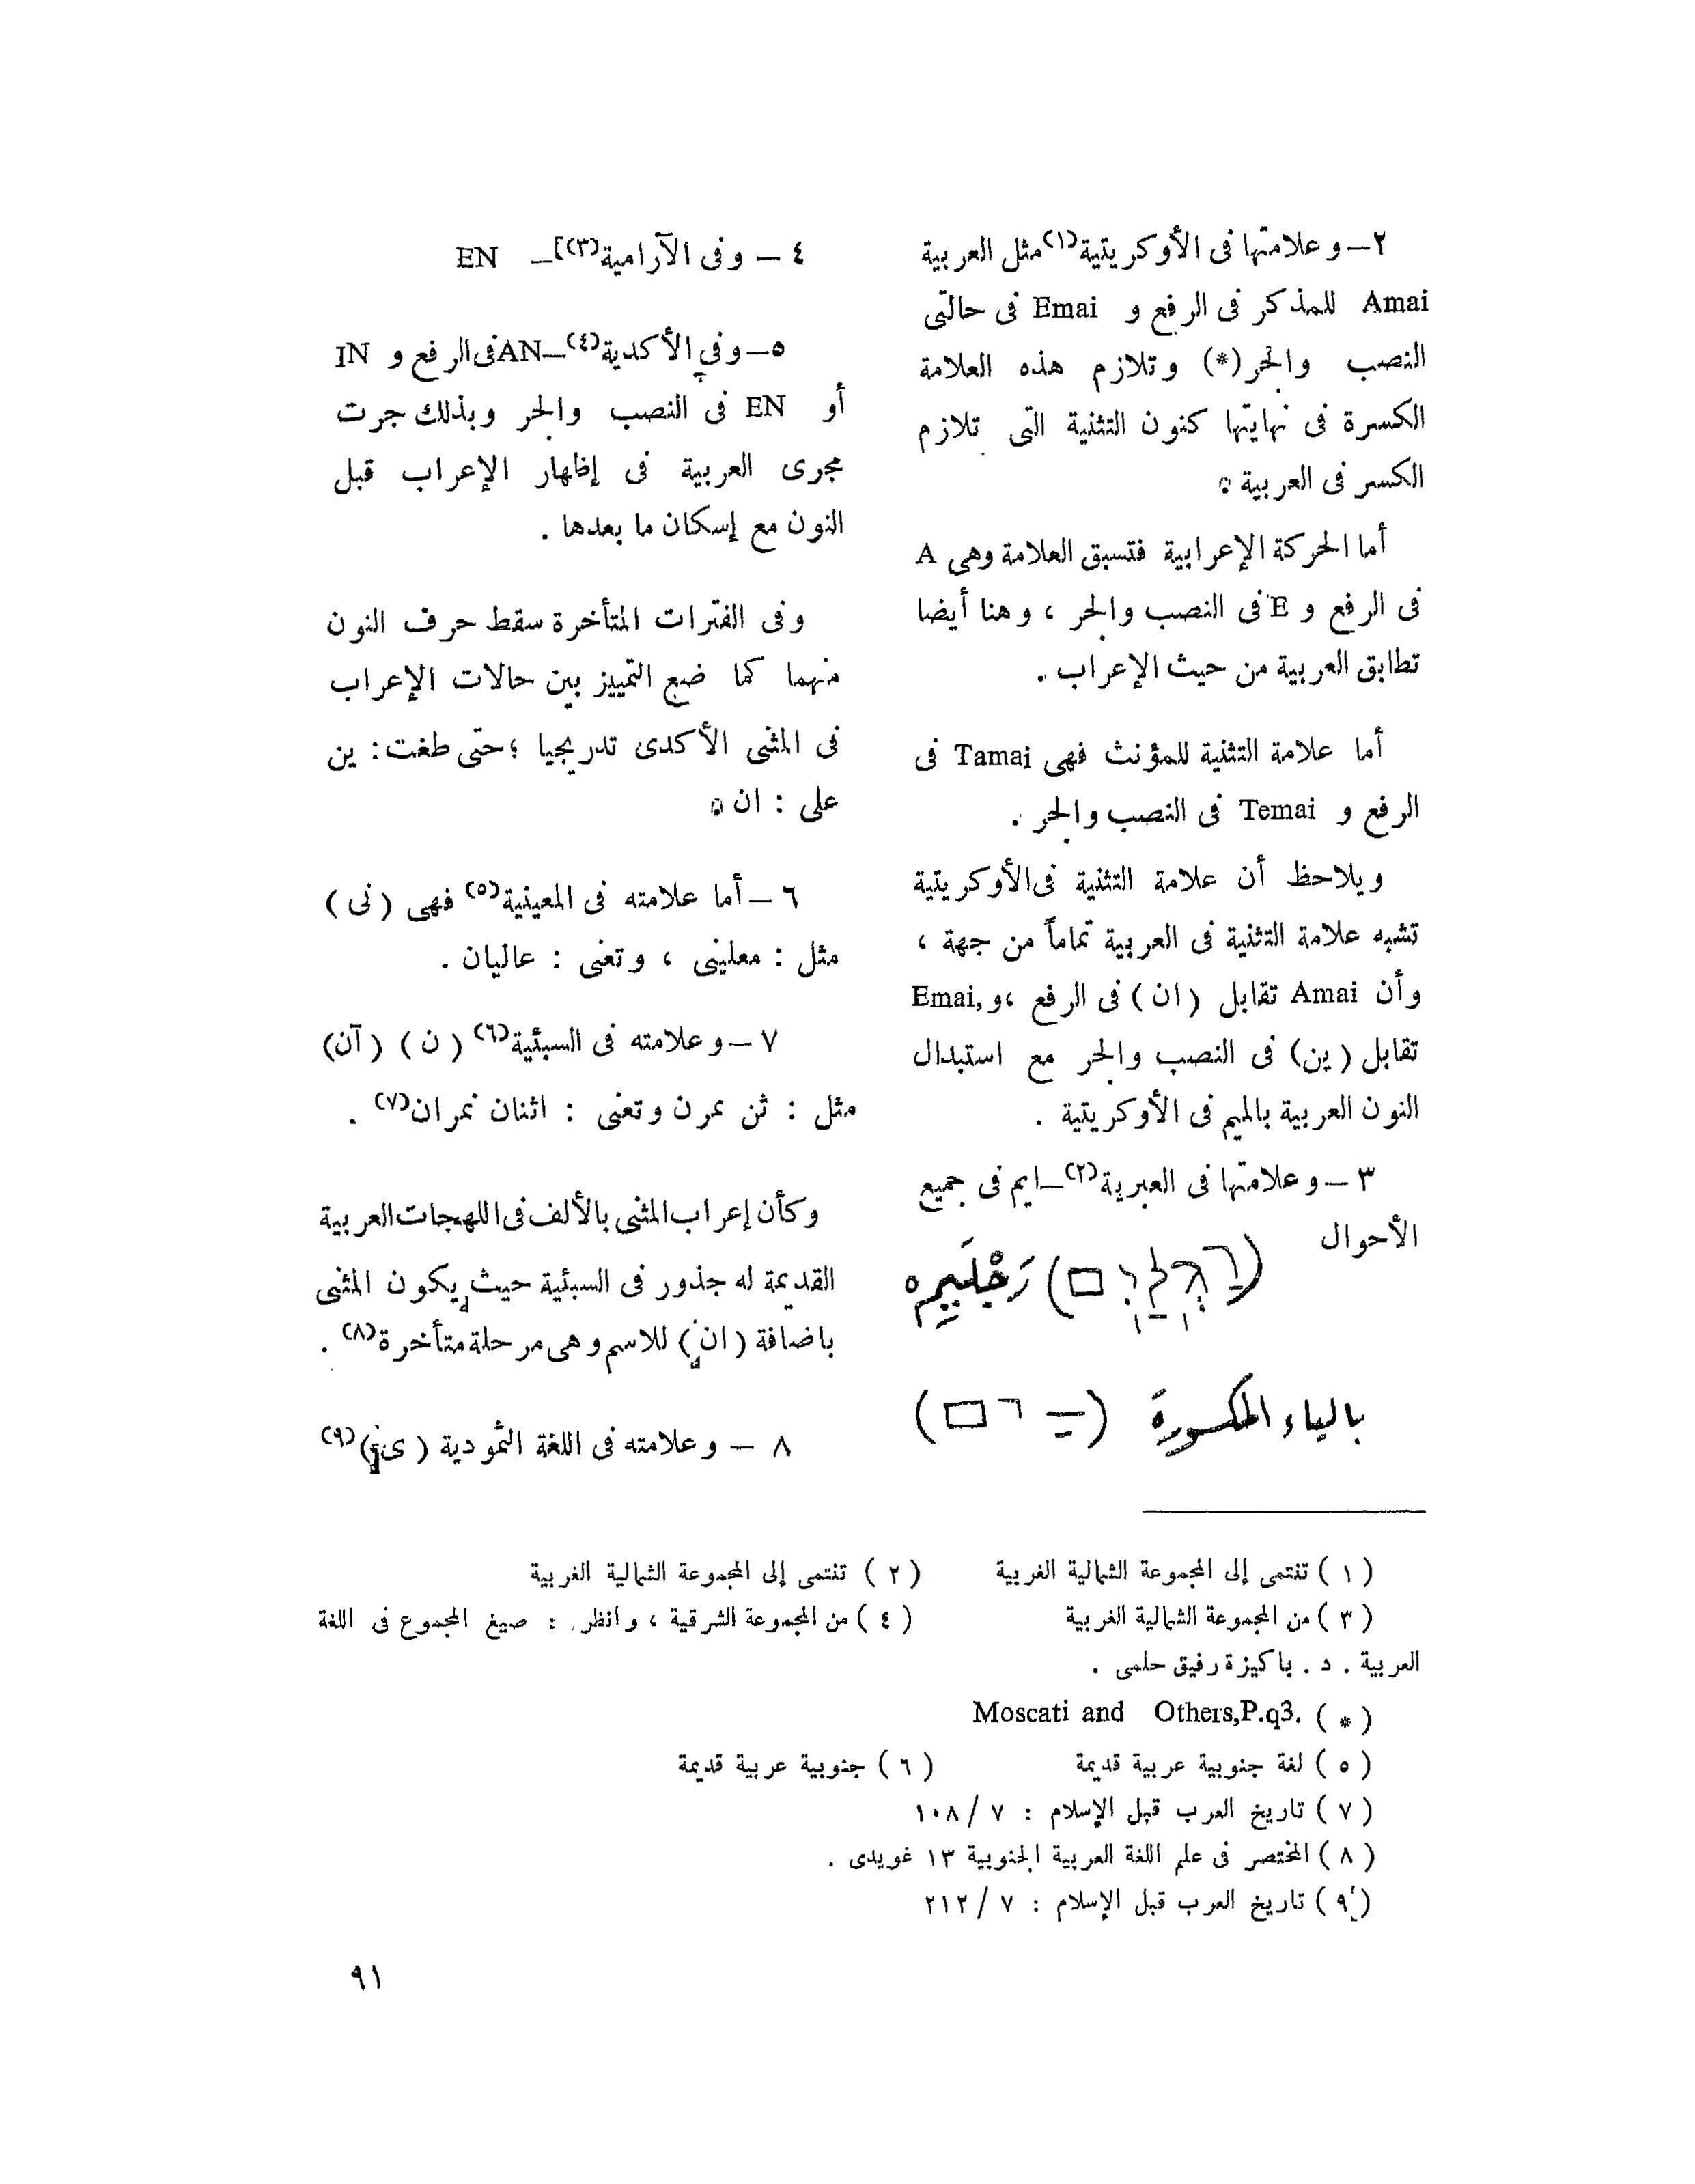 ٢ – وعلامتها فى الأوكريتية(١) مثل العربية
Amai للمذكر فى الرفع و Emai فى حالتى
النصب والجر (*) وتلازم هذه العلامة
الكسرة فى نهايتها كنون التثنية التى تلازم
الكسر فى العربية .
أما الحركة الإعرابية فتسبق العلامة وهى A
فى الرفع و E فى النصب والجر ، وهنا أيضا
تطابق العربية من حيث الإعراب .
أما علامة التثنية للمؤنث فهى Tamai فى
الرفع و Temai فى النصب والجر .
ويلاحظ أن علامة التثنية فى الأوكريتية
تشبه علامة التثنية فى العربية تماماً من جهة ،
وأن Amai تقابل ( ان ) فى الرفع ، و Emai,
تقابل ( ين ) فى النصب والجر مع استبدال
النون العربية بالميم فى الأوكريتية .
٣ – وعلامتها فى العبرية(٢) – ايم فى جميع
الأحوال
بالياء المكسورة
٤ – وفى الآرامية(٣)] – EN
٥ – وفى الأكدية(٤) – AN فى الرفع و IN
أو EN فى النصب والجر وبذلك جرت
مجرى العربية فى إظهار الإعراب قبل
النون مع إسكان ما بعدها .
وفى الفترات المتأخرة سقط حرف النون
منهما كما ضع التمييز بين حالات الإعراب
فى المثنى الأكدى تدريجيا ؛ حتى طغت : ين
على : ان .
٦ – أما علامته فى المعينية(٥) فهى ( نى )
مثل : معلينى ، وتعنى : عاليان .
٧ – وعلامته فى السبئية(٦) ( ن ) ( آن )
مثل : ثن نمرن وتعنى : اثنان نمران(٧) .
وكأن إعراب المثنى بالألف فى اللهجات العربية
القديمة له جذور فى السبئية حيث يكون المثنى
باضافة ( ان ) للاسم وهى مرحلة متأخرة(٨) .
٨ – وعلامته فى اللغة الثمودية ( ى )(٩)
( ١ ) تنتمى إلى المجموعة الشمالية الغربية ( ٢ ) تنتمى إلى المجموعة الشمالية الغربية
( ٣ ) من المجموعة الشمالية الغربية ( ٤ ) من المجموعة الشرقية ، وانظر : صيغ المجموع فى اللغة
العربية . د . باكيزة رفيق حلمى .
( * ) Moscati and Others,P.q3.
( ٥ ) لغة جنوبية عربية قديمة ( ٦ ) جنوبية عربية قديمة
( ٧ ) تاريخ العرب قبل الإسلام : ٧ / ١٠٨
( ٨ ) المختصر فى علم اللغة العربية الجنوبية ١٣ غويدى .
( ٩ ) تاريخ العرب قبل الإسلام : ٧ / ٢١٢
٩١